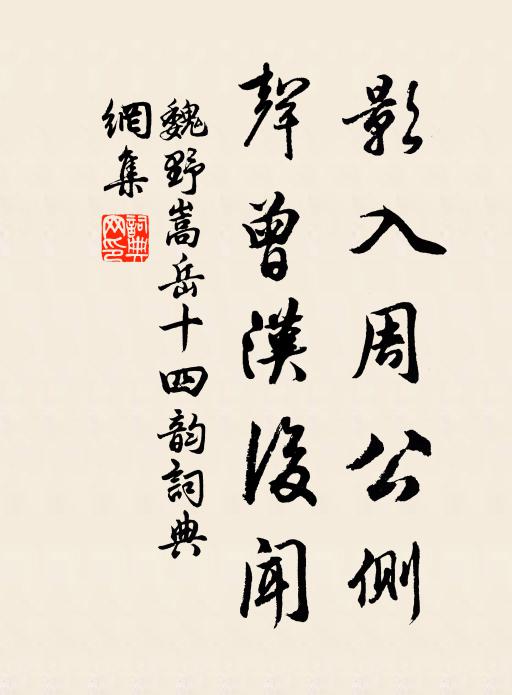 影入周公側
聲曾漢後聞
魏野嵩岳十四韵詞典
網集
詞典網印